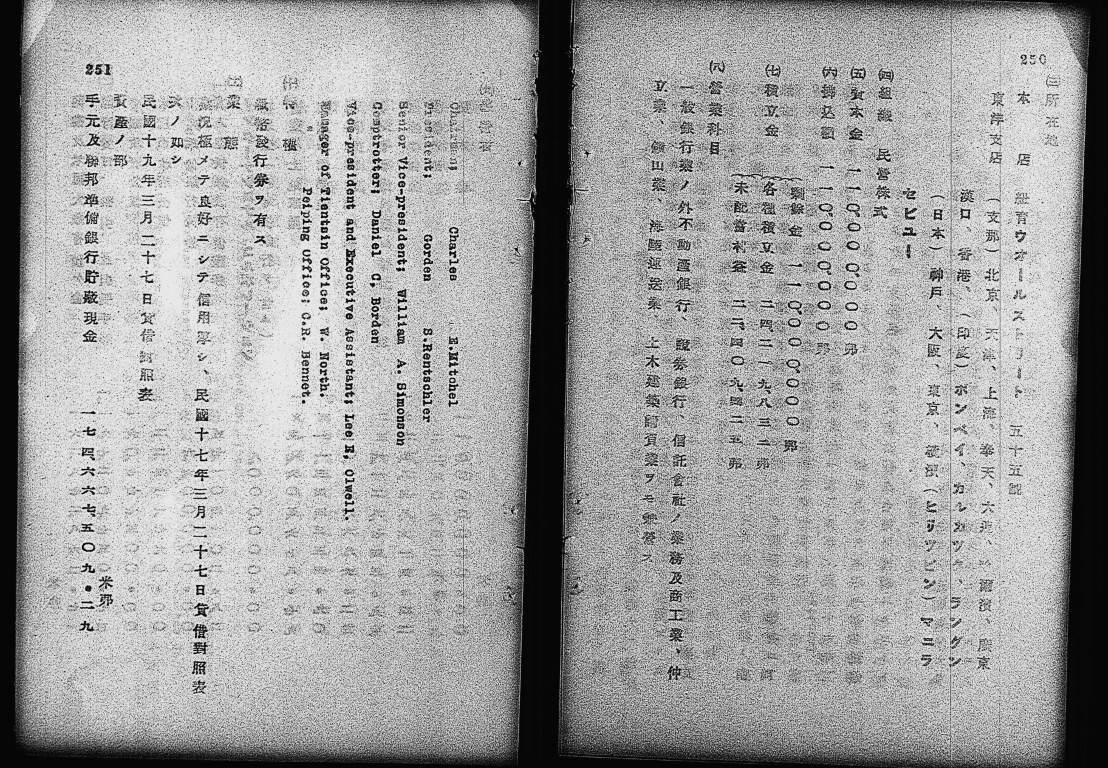 250
(三)所在地
本店 紐育ウオールストリート 五十五號
東洋支店 (支那)北京、天津、上海、奉天、大連、哈爾濱、廣東
漢口、香港、(印度)ボンベイ、カルカツタ、ラングン
(日本)神戶、大阪、東京、橫濱(ヒリツピン)マニラ
セビユー
(四)組織 民營株式
(五)資本金 一一〇、〇〇〇、〇〇〇 弗
(六)拂込額 一一〇、〇〇〇、〇〇〇 弗
(七)積立金
剩餘金 一一〇、〇〇〇、〇〇〇 弗
各種積立金 二四、二一九、八三二 弗
未配當利益 二二、四〇九、四二五 弗
(八)營業科目
一般銀行業ノ外不動產銀行、證券銀行、信託會社ノ業務及商工業、仲
立業、鑛山業、海陸運送業、土木建築請負業ヲモ兼營ス
251
Chairman; Charles E.Mitchel
President; Gorden S.Rentschler
Senior Vice-president; William A. Simonson
Comptrotter; Daniel C, Borden
Vice-president and Executive Assistant; Lee E, Olwell.
Manager of Tientsin Office; W. North.
" Peiping Office; C.R. Bennet.
(十)特權
紙幣發行券ヲ有ス
業態
業況極メテ良好ニシテ信用厚シ、民國十七年三月二十七日貸借對照表
次ノ如シ
民國十九年三月二十七日貸借對照表
資產ノ部 米弗
手元及聯邦準備銀行貯藏現金 一七四、六六七、五〇九・二九